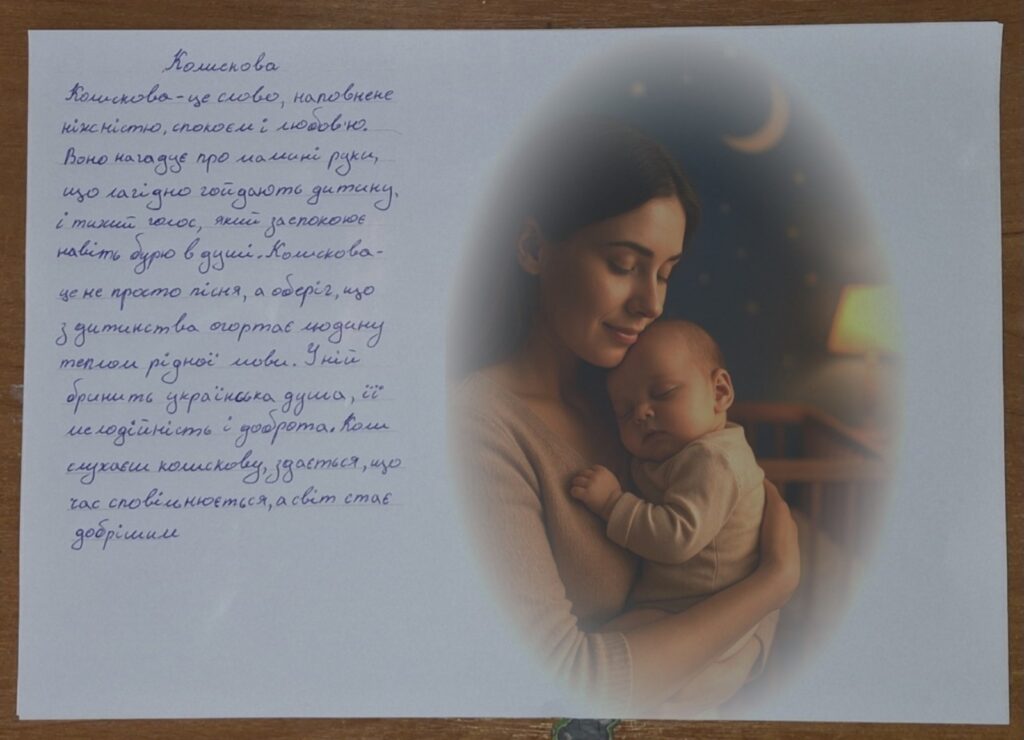 Колискова
Колискова - це слово, наповнене
ніжністю, спокоєм і любов'ю.
Воно нагадує про мамині руки,
що лагідно гойдають дитину,
і тихий голос, який заспокоює
навіть бурю в душі. Колискова-
це не просто пісня, а оберіг, що
з дитинства огортає людину
теплом рідної мови. У ній
бринить українська душа, її
мелодійність і доброта. Коли
слухаєш колискову, здається, що
час сповільнюється, а світ стає
добрішим